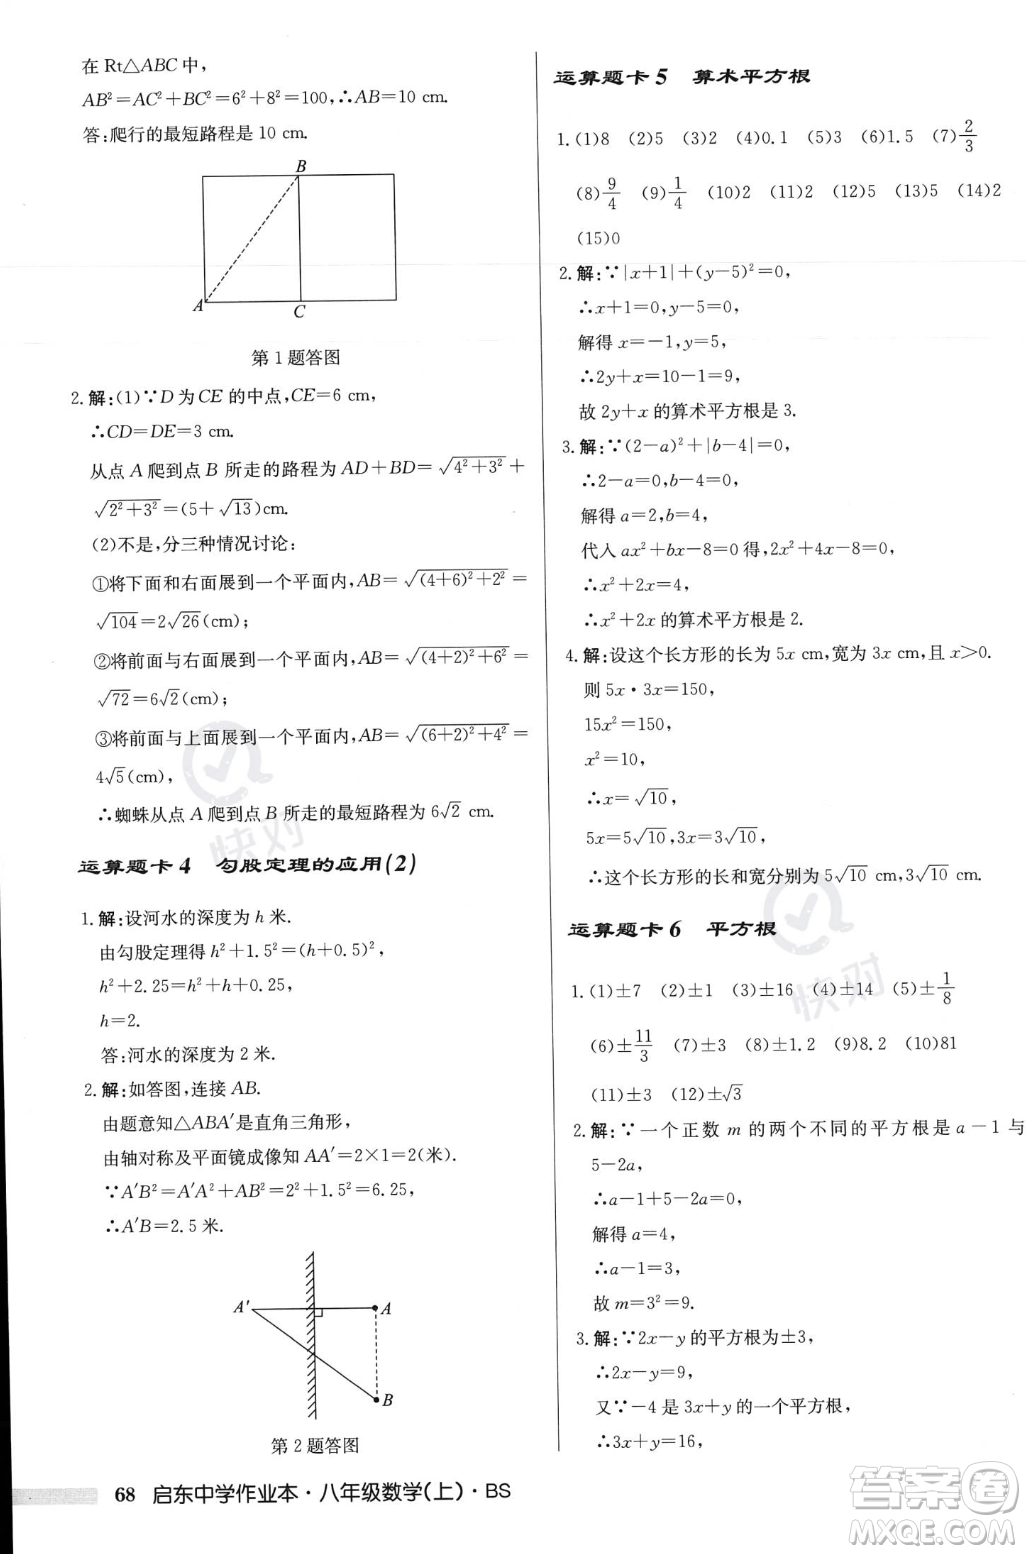 在 Rt△ABC 中,
AB²=AC²+BC²=6²+8²=100,∴AB=10 cm.
答:爬行的最短路程是 10 cm.
B
A
C
第 1 题答图
2.解:(1)∵D 为 CE 的中点,CE=6 cm,
∴CD=DE=3 cm.
从点 A 爬到点 B 所走的路程为 AD+BD=√(4²+3²)+
√(2²+3²)=(5+√13)cm.
(2)不是,分三种情况讨论:
①将下面和右面展到一个平面内,AB=√((4+6)²+2²)=
√104=2√26(cm);
②将前面与右面展到一个平面内,AB=√((4+2)²+6²)=
√72=6√2(cm);
③将前面与上面展到一个平面内,AB=√((6+2)²+4²)=
4√5(cm),
∴蜘蛛从点 A 爬到点 B 所走的最短路程为 6√2 cm.
运算题卡 4 勾股定理的应用(2)
1.解:设河水的深度为 h 米.
由勾股定理得 h²+1.5²=(h+0.5)²,
h²+2.25=h²+h+0.25,
h=2.
答:河水的深度为 2 米.
2.解:如答图,连接 AB.
由题意知△ABA′是直角三角形,
由轴对称及平面镜成像知 AA′=2×1=2(米).
∵A′B²=A′A²+AB²=2²+1.5²=6.25,
∴A′B=2.5 米.
A′
A
B
第 2 题答图
68 启东中学作业本·八年级数学(上)·BS
运算题卡 5 算术平方根
1.(1)8 (2)5 (3)2 (4)0.1 (5)3 (6)1.5 (7)2/3
(8)9/4 (9)1/4 (10)2 (11)2 (12)5 (13)5 (14)2
(15)0
2.解:∵|x+1|+(y-5)²=0,
∴x+1=0,y-5=0,
解得 x=-1,y=5,
∴2y+x=10-1=9,
故 2y+x 的算术平方根是 3.
3.解:∵(2-a)²+|b-4|=0,
∴2-a=0,b-4=0,
解得 a=2,b=4,
代入 ax²+bx-8=0 得,2x²+4x-8=0,
∴x²+2x=4,
∴x²+2x 的算术平方根是 2.
4.解:设这个长方形的长为 5x cm,宽为 3x cm,且 x>0.
则 5x·3x=150,
15x²=150,
x²=10,
∴x=√10,
5x=5√10,3x=3√10,
∴这个长方形的长和宽分别为 5√10 cm,3√10 cm.
运算题卡 6 平方根
1.(1)±7 (2)±1 (3)±16 (4)±14 (5)±1/8
(6)±11/3 (7)±3 (8)±1.2 (9)8.2 (10)81
(11)±3 (12)±√3
2.解:∵一个正数 m 的两个不同的平方根是 a-1 与
5-2a,
∴a-1+5-2a=0,
解得 a=4,
∴a-1=3,
故 m=3²=9.
3.解:∵2x-y 的平方根为±3,
∴2x-y=9,
又∵-4 是 3x+y 的一个平方根,
∴3x+y=16,
快对
快对
答案圈
MXQE.COM